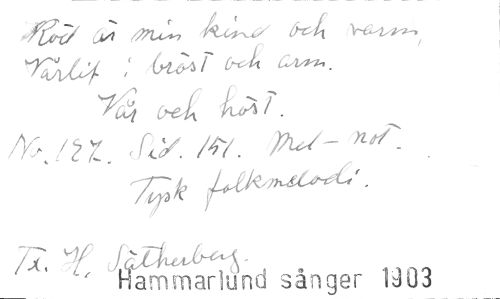 Röd är min kind och varm,
Vårlif i bröst och arm.
Vår och höst.
No. 127. Sid. 151. Mel-not.
Tysk folkmelodi.
Tx. H. Sätherberg.
Hammarlund sånger 1903